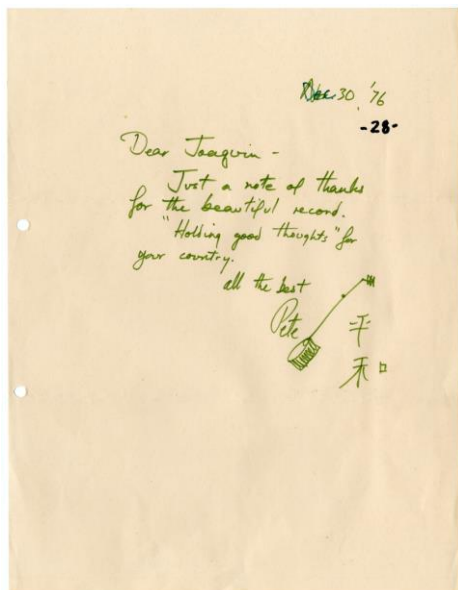 Dec 30 '76
-28-
Dear Joaquin -
Just a note of thanks
for the beautiful record.
"Holding good thoughts" for
your country.
all the best
Pete
平
和